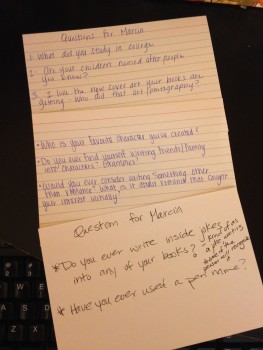 Questions for Marcia
1. What did you study in college
2. Are your children named after people
you know?
3. I love the new cover art your books are
getting. Who did that art/photography?
• Who is your favorite character you've created?
• Do you ever find yourself writing friends/family
into characters? Examples?
• Would you ever consider writing something other
than romance? What is it about romance that caught
your interest initially
Question for Marcia
* Do you ever write inside jokes
into any of your books?
kind of as
a
writing
the
person will recognize
* Have you ever used a pen name?